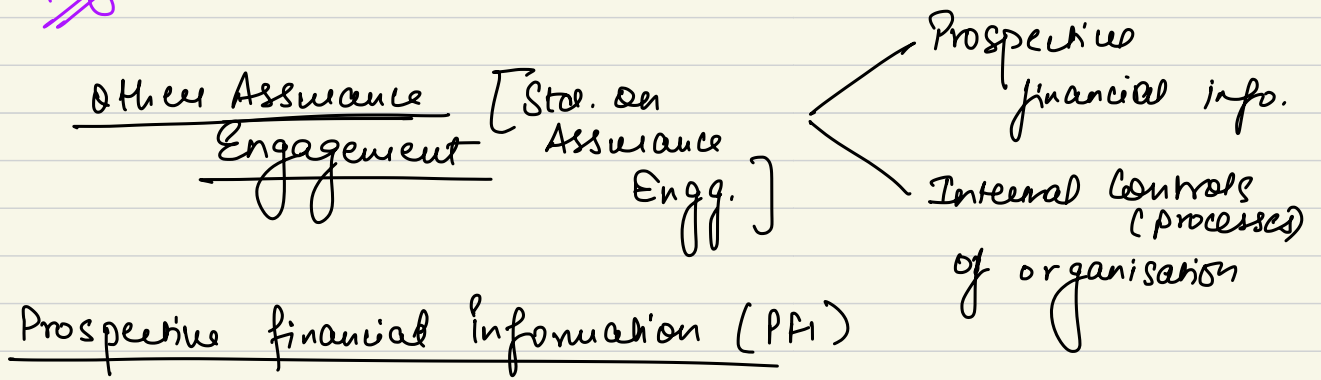 Other Assurance
Engagement
[Std. on
Assurance
Engg.]
Prospective
financial info.
Internal Controls
(processes)
of organisation
Prospective financial Information (PFI)